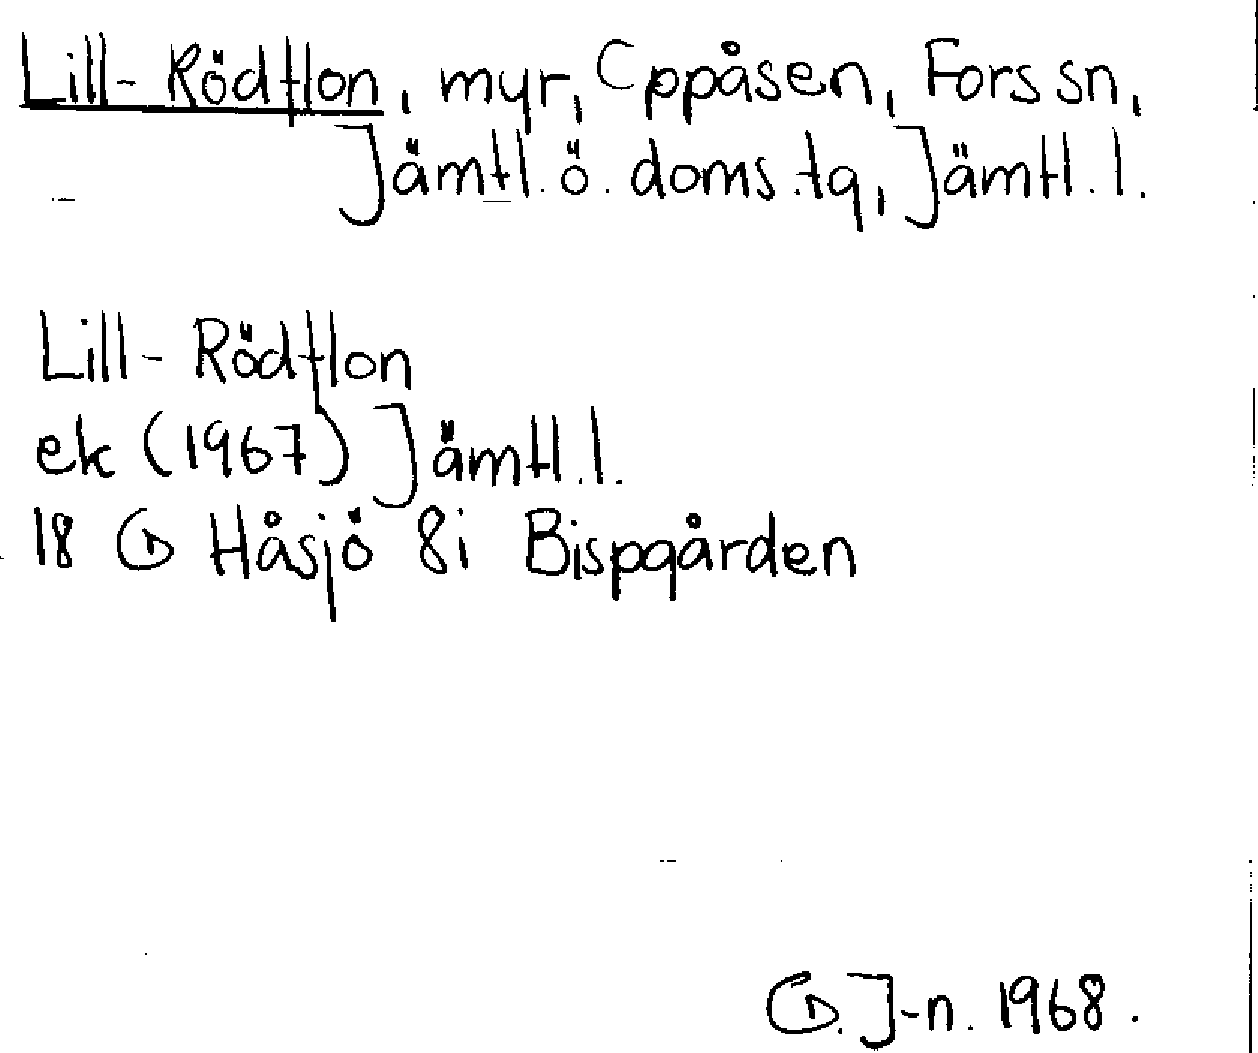 Lill-Rödflon, myr, Cppåsen, Fors sn,
Jämtl. ö. doms.tg, Jämtl.l.
Lill-Rödflon
ek (1967) Jämtl.l.
18 G Håsjö 8i Bispgården
G. J-n. 1968.